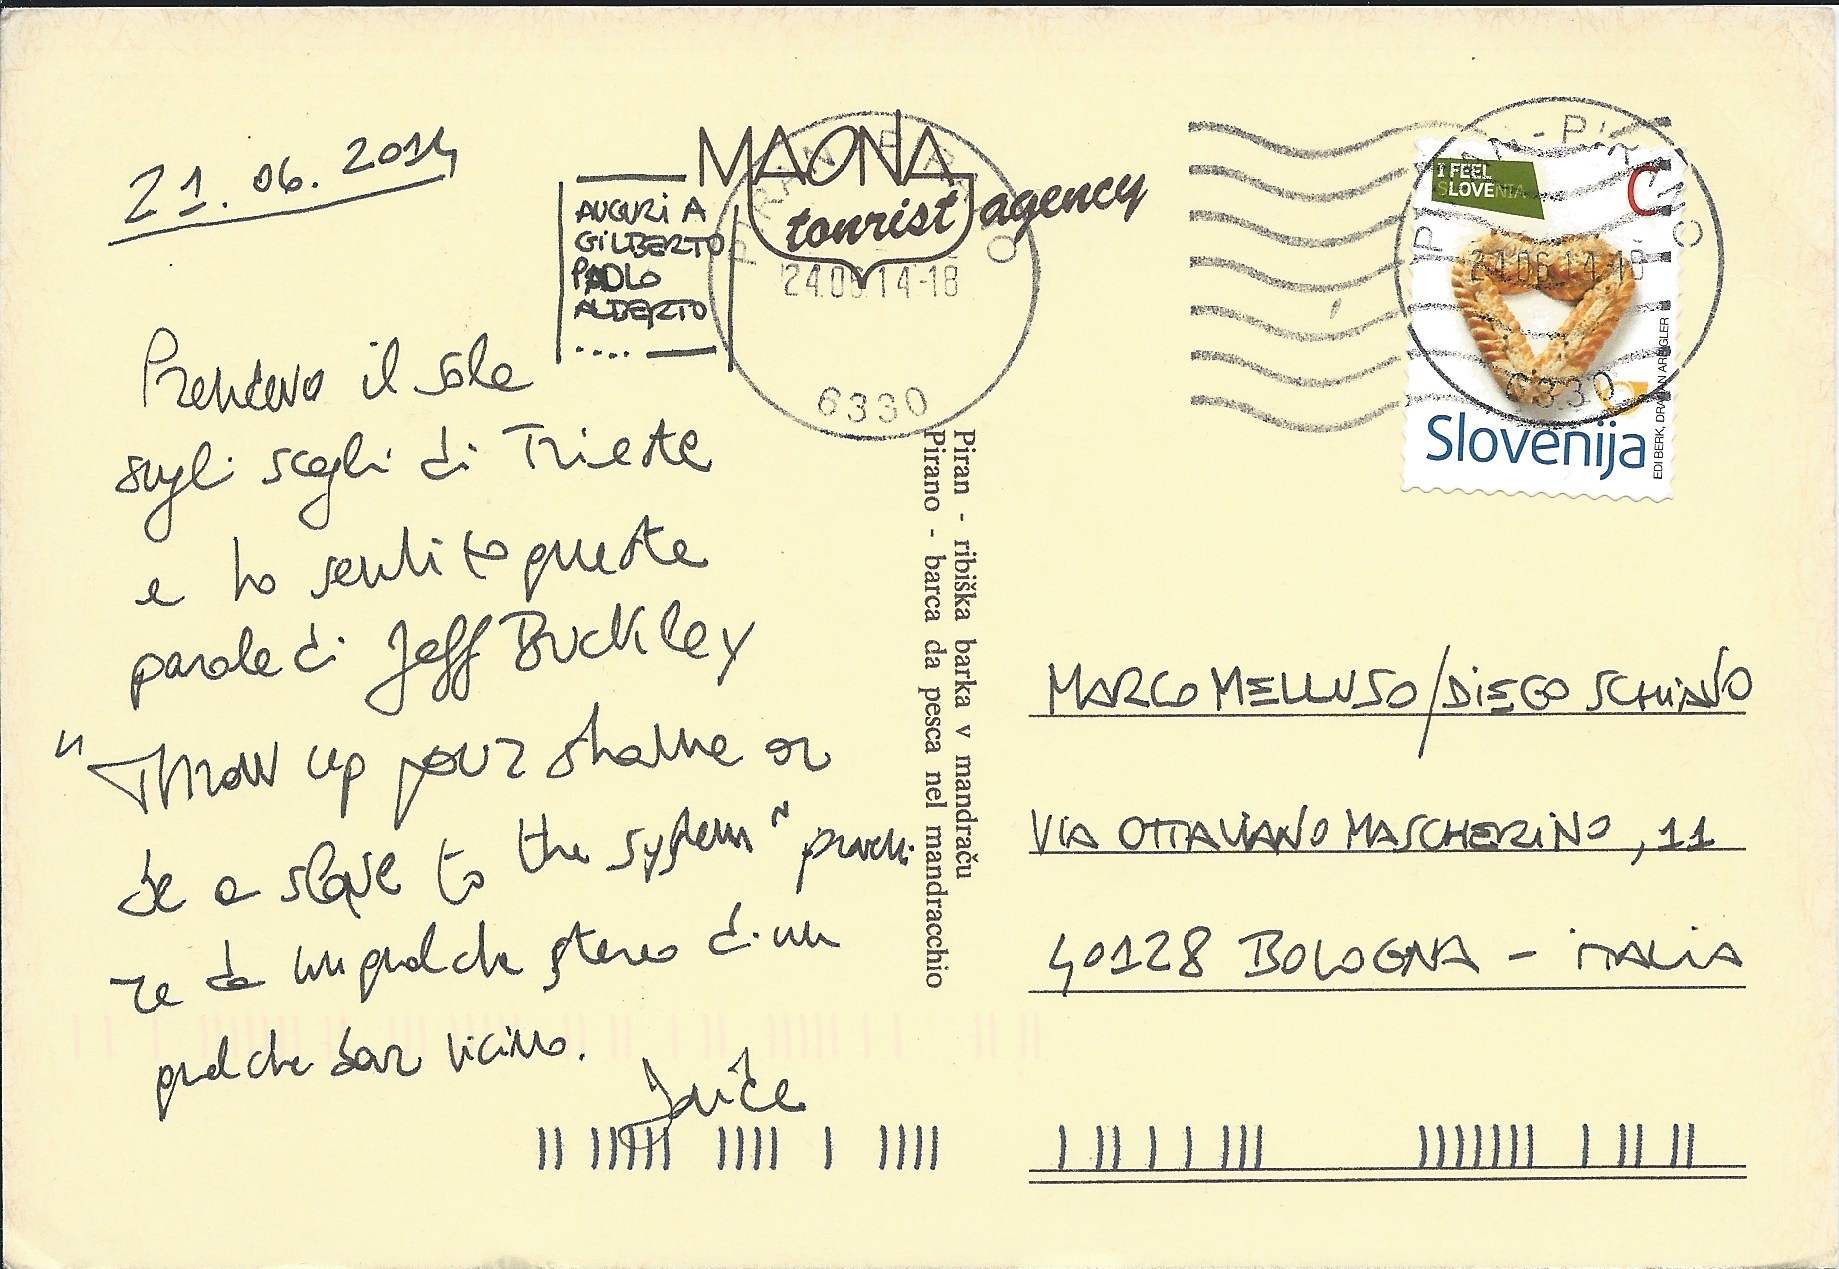 21.06.2014
MAONA
tourist agency
AUGURI A
GILBERTO
PAOLO
ALBERTO
Prendevo il sole
sugli scogli di Trieste
e ho sentito queste
parole di Jeff Buckley
"Throw up your shame or
be a slave to the system"
re da un qualche stereo di un
qualche bar vicino.
PIRAN - PIRANO
24.06.14-18
6330
Piran - ribiška barka v mandraču
Pirano - barca da pesca nel mandracchio
I FEEL
SLOVENIA
C
Slovenija
EDI BERK, DRAGAN ARRIGLER
PIRAN - PIRANO
24.06.14-18
6330
MARCO MELLUSO/DIEGO SCHIAVO
VIA OTTAVIANO MASCHERINO, 11
40128 BOLOGNA - ITALIA